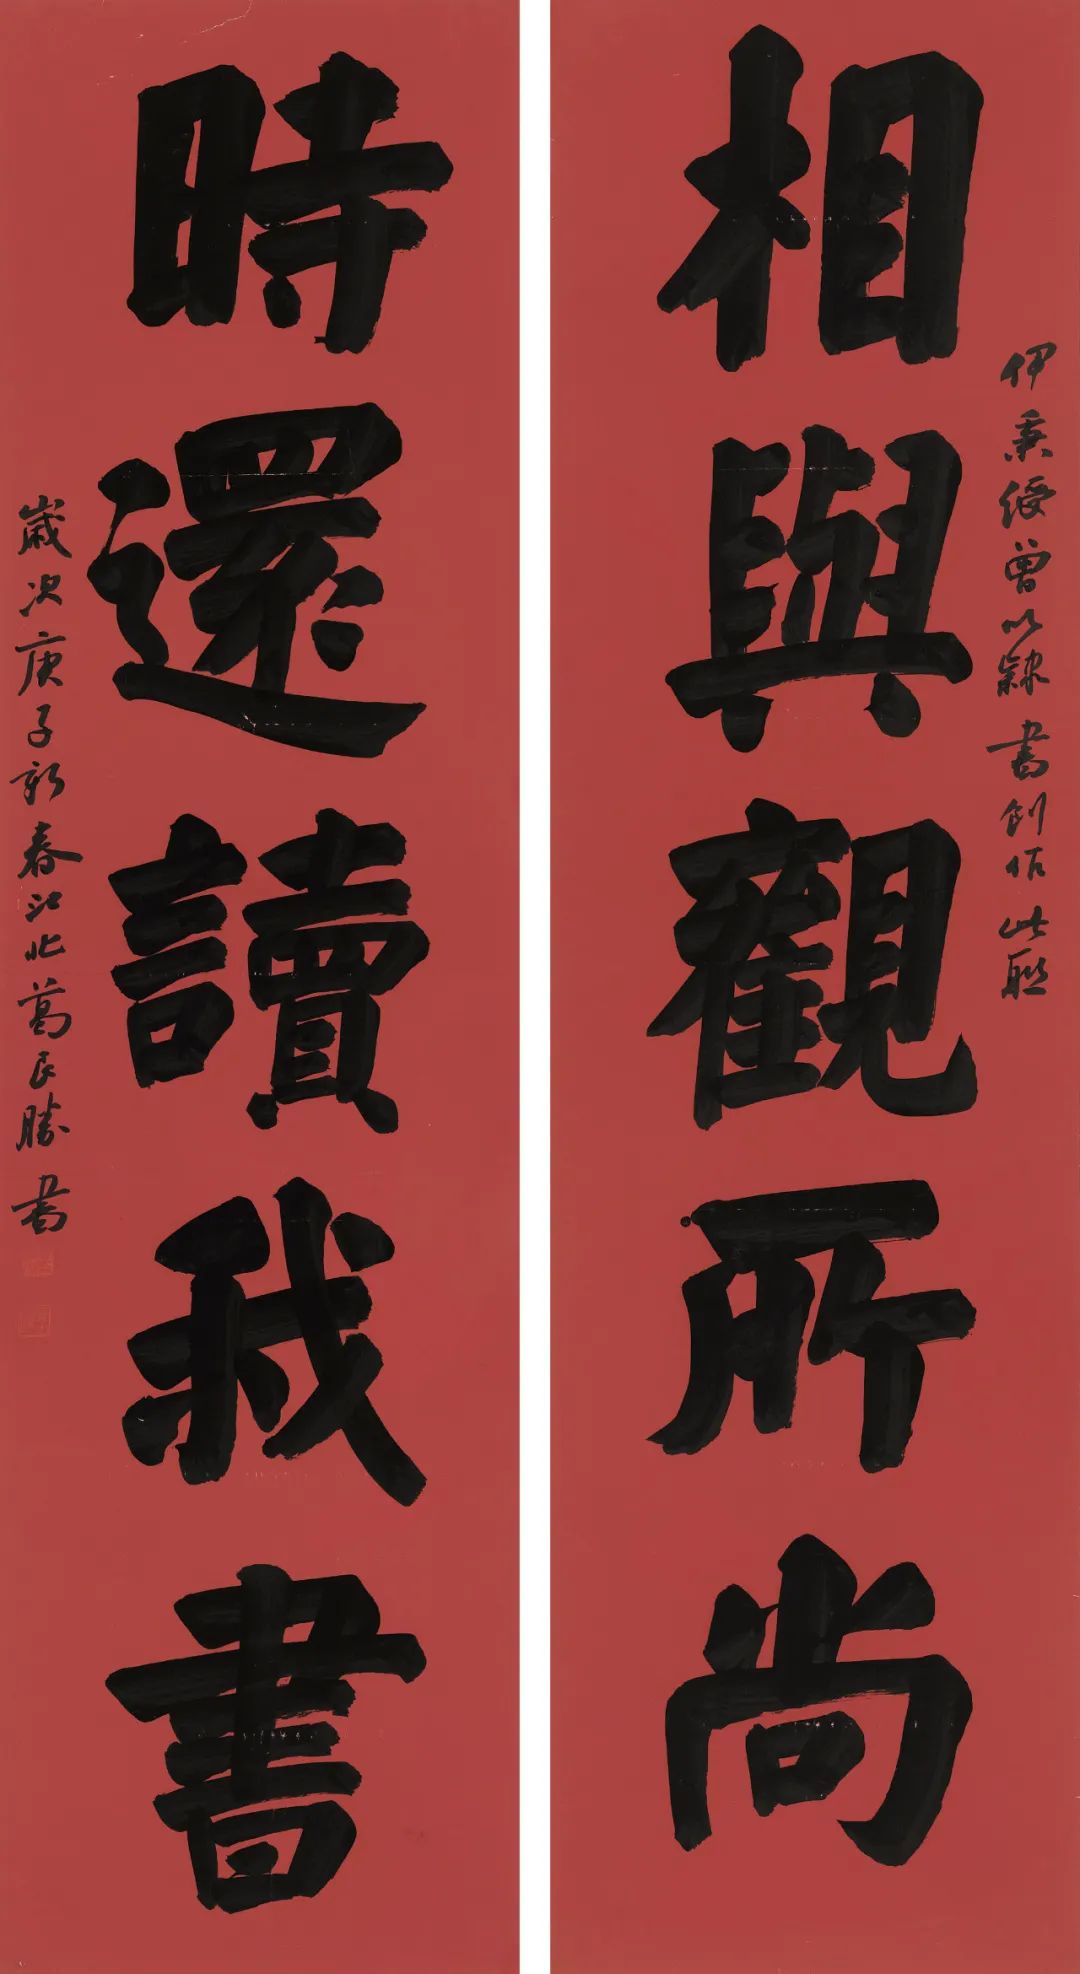 相與觀所尚
伊秉綬曾以隸書創作此聯
時還讀我書
歲次庚子新春江北葛良勝書